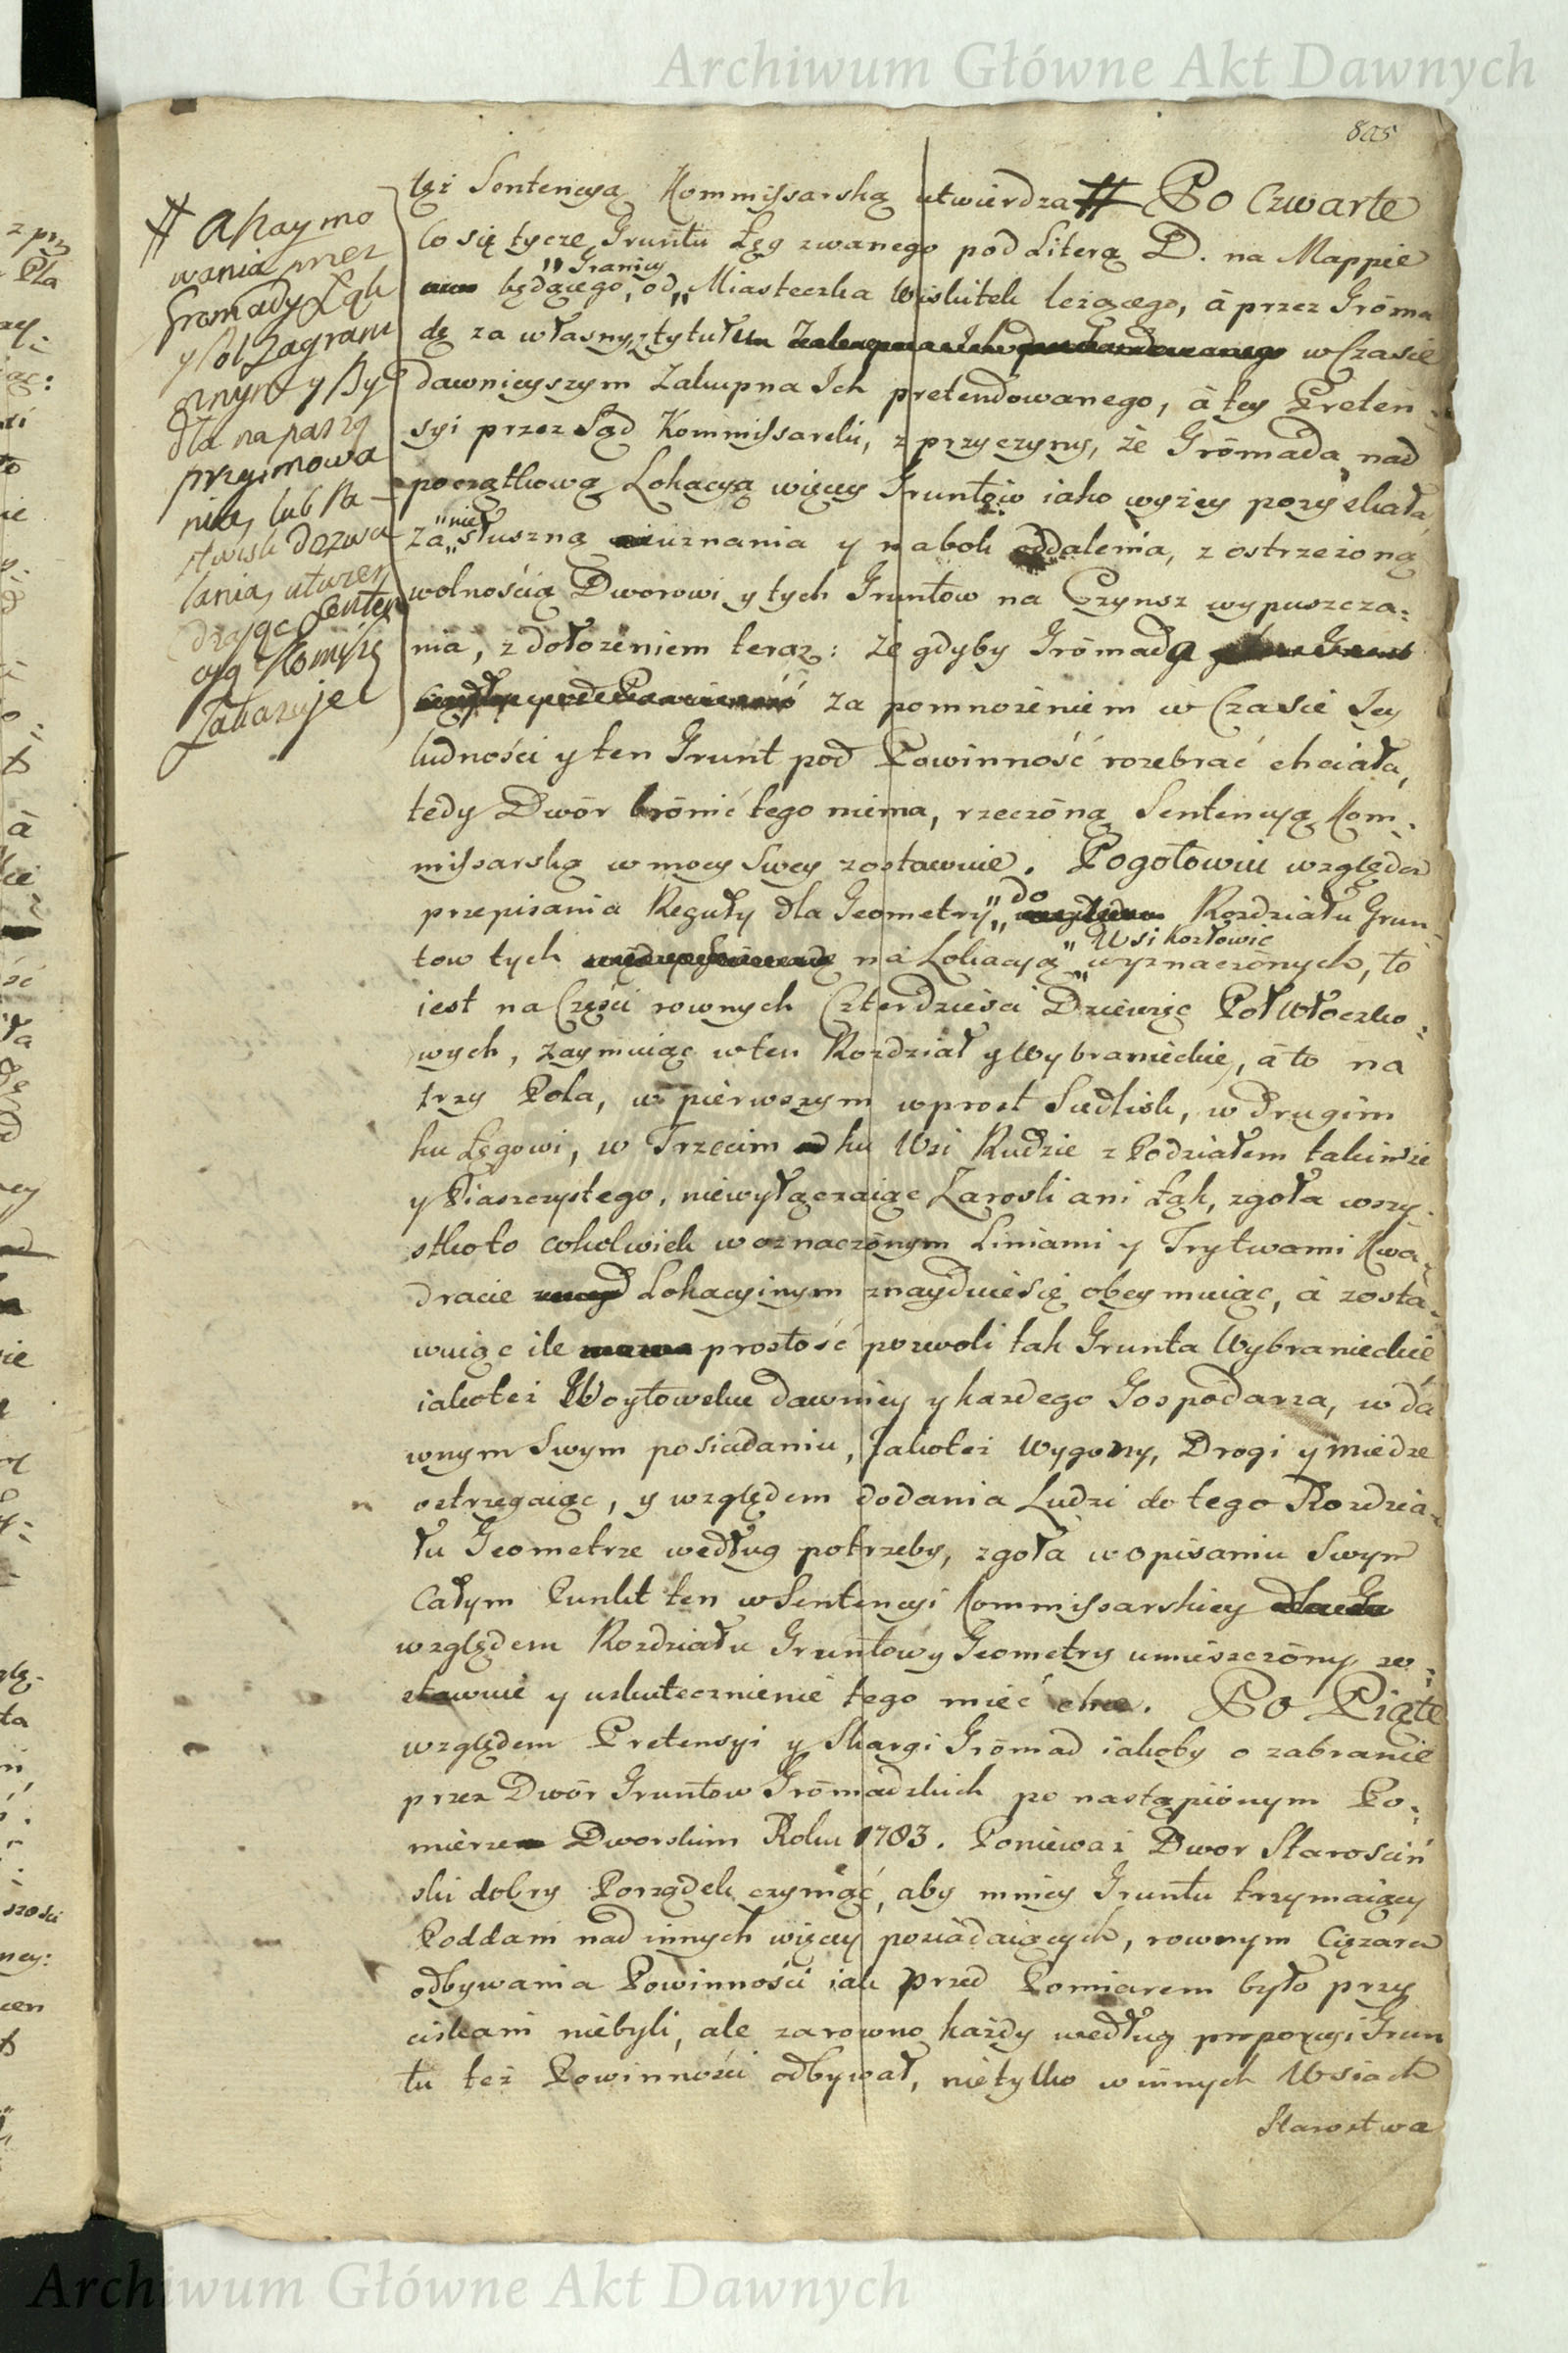 Archiwum Główne Akt Dawnych
805
też Sentencyą Kommissarską utwierdza # Po Czwarte
Co się tycze Gruntu Łęg zwanego pod Literą D. na Mappie
będącego, od „Granicy Miasteczka Wiskitek leżącego, à przez Grōma
dę za własny, z tytułu w Czasie
dawnieyszym Zakupna Ich pretendowanego, à tey Preten
syi przez Sąd Kommissarski, z przyczyny, że Grōmada nad
początkową Lokacyą więcey Gruntow iako wyżey pozyskała,
za „nie słuszną uznania y na bok oddalenia, z ostrzeżoną
wolnością Dworowi y tych Gruntow na Czynsz wypuszcza:
nia, z dołożeniem teraz: że gdyby Grōmada
za pomnożeniem w Czasie Jey
ludności y ten Grunt pod Powinność rozebrać chciała,
tedy Dwór brōnić tego niema, rzeczōną Sentencyą Kom:
missarską w mocy Swey zostawuie. Pogotowiu względem
przepisania Reguły dla Geometry „do Rozdziału Grun
tow tych na Lokacyą „Wsi Kozłowic wyznaczōnych, to
iest na Części rownych Czterdzieści Dziewięć Poł Włoczko:
wych, zaymuiąc w ten Rozdział y Wybranieckie, à to na
trzy Pola, w pierwszym wprost Siedlisk, w drugim
ku Łęgowi, w Trzecim ku Wsi Rudzie z Podziałem takimże
y Piaszczystego, niewyłączaiąc Zarośli ani Łąk, zgoła wszy:
stko to cokolwiek w oznaczōnym Liniami y Trytwami Kwa:
dracie Lokacyinym znayduie się obeymuiąc, à zosta:
wuiąc ile prostość pozwoli tak Grunta Wybranieckie
iakoteż Woytowskie dawniey y każdego Gospodarza, w da
wnym Swym posiadaniu, Jakoteż Wygony, Drogi y miedze
ostrzegaiąc, y względem dodania Ludzi do tego Rozdzia:
łu Geometrze według potrzeby, zgoła w opisaniu Swym
Całym Punkt ten w Sentencyi Kommissarskiey
względem Rozdziału Gruntow y Geometry umieszczōny zo:
stawuie y uskutecznienie tego mieć chce. Po Piąte
względem Pretensyi y Skargi Grōmad iakoby o zabranie
przez Dwór Gruntow Grōmadzkich po nastąpiōnym Po:
mierze Dworskim Roku 1783. Ponieważ Dwor Starościń
ski dobry Porządek czyniąc, aby mniey Gruntu trzymaiący
Poddani nad innych więcey posiadaiących, rownym Ciężarem
odbywania Powinności iak przed Pomiarem było przy
ciskani niebyli, ale zarowno każdy według proporcyi Grun
tu też Powinności odbywał, nietylko w innych Wsiach
Starostwa
# a Naymo
wania przez
Gromady Łąk
y Pol Zagrani
cznych y By
dła na paszą
przyimowa
nia, lub Pa
stwisk dozwa
lania, utwier
dzaiąc Senten
cyą Komiss:
Zakazuje
Archiwum Główne Akt Dawnych